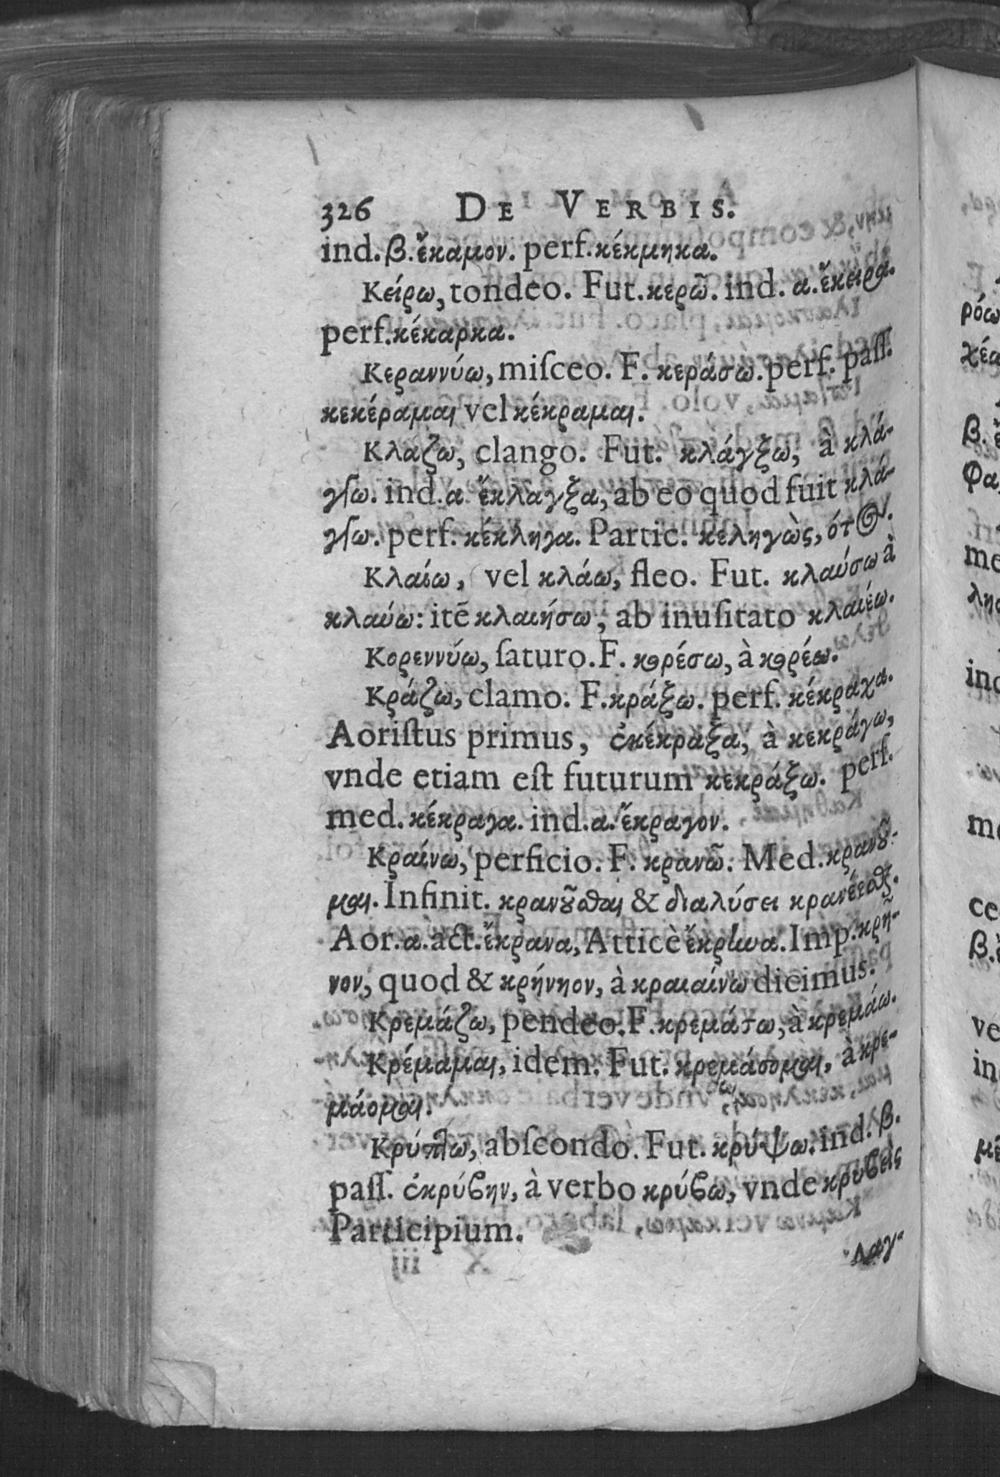 326 DE VERBIS.
ind. β. ἔκαμον. perf. κέκμηκα.
Κείρω, tondeo. Fut. κερῶ. ind. α. ἔκειρα.
perf. κέκαρκα.
Κεραννύω, miſceo. F. κεράσω. perf. paſſ.
κεκέραμαι vel κέκραμαι.
Κλαζω, clango. Fut. κλάγξω, à κλά-
γγω. ind. α ἔκλαγξα, ab eo quod fuit κλά-
γγω. perf. κέκληγα. Partic. κεληγὼς, ότος.
Κλαίω, vel κλάω, fleo. Fut. κλαύσω à
κλαύω: itē κλαιήσω, ab inuſitato κλαιέω.
Κορεννύω, ſaturo. F. κορέσω, à κορέω.
Κράζω, clamo. F. κράξω. perf. κέκραχα.
Aoriſtus primus, ἐκέκραξα, à κεκράγω,
vnde etiam eſt futurum κεκράξω. perf.
med. κέκραγα. ind. α. ἔκραγον.
Κραίνω, perficio. F. κρανῶ. Med. κρανοῦ-
μαι. Infinit. κρανοῦσθαι & διαλύσει κρανέεσθαι.
Aor. α. act. ἔκρανα, Atticè ἔκρηνα. Imp. κρῆ-
νον, quod & κρήνηον, à κραιαίνω dicimus.
Κρεμάζω, pendeo. F. κρεμάσω, à κρεμάω.
Κρέμαμαι, idem. Fut. κρεμάσομαι, à κρε-
μάομαι.
Κρύπτω, abſcondo. Fut. κρύψω. ind. β.
paſſ. ἐκρύβην, à verbo κρύβω, vnde κρυβεὶς
Participium.
Λαγ-